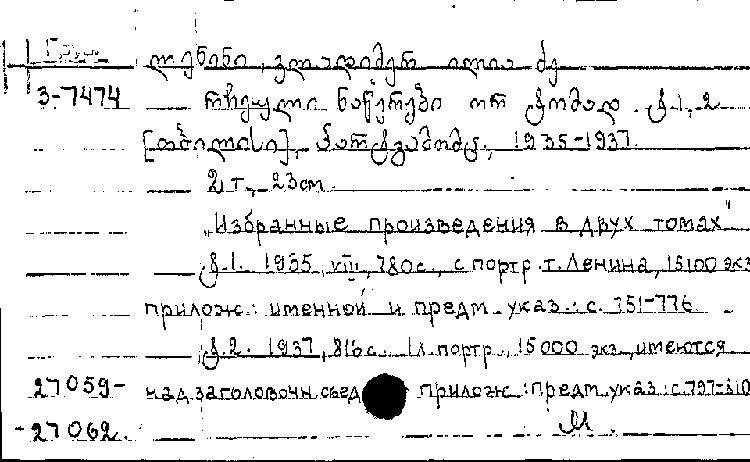 Груз.
ლენინი, ვლადიმერ ილიას ძე
3-7474 რჩეული ნაწერები ორ ტომად. ტ.1,2
[თბილისი], პარტგამომც., 1935-1937.
2 т., 23 cm.
„Избранные произведения в двух томах"
ტ.1. 1935, VIII, 780с., с портр. т. Ленина, 15100 экз
прилож.: именной и предм. указ.: с. 751-776.
ტ.2. 1937, 816с. 1л. портр., 15000 экз., имеются
27059- над заголовочн. свед прилож.: предм. указ.: с.797-810
-27062. М.